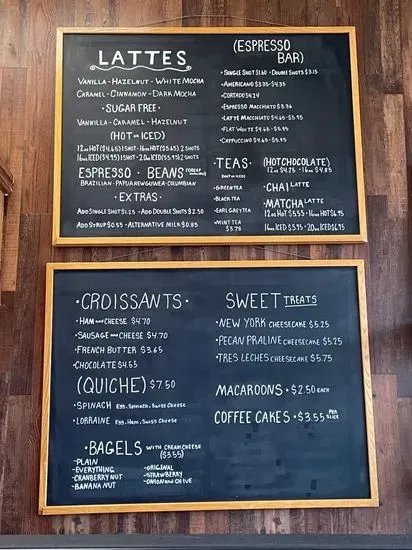 LATTES
VANILLA · HAZELNUT · WHITE MOCHA
CARAMEL · CINNAMON · DARK MOCHA
· SUGAR FREE ·
VANNILLA · CARAMEL · HAZELNUT
(HOT OR ICED)
12oz HOT ($4.65) 1 SHOT · 16oz HOT ($5.65) 2 SHOTS
16oz ICED ($4.95) 1 SHOT · 20oz ICED ($5.95) 2 SHOTS
ESPRESSO · BEANS
BRAZILIAN · PAPUA NEW GUINEA · COLUMBIAN
· EXTRAS ·
ADD SINGLE SHOT $1.25 · ADD DOUBLE SHOTS $2.50
ADD SYRUP $0.55 · ALTERNATIVE MILK $0.85
(ESPRESSO
BAR)
· SINGLE SHOT $1.60 · DOUBLE SHOTS $3.15
· AMERICANO $3.35-$4.35
· CORTADO $4.24
· ESPRESSO MACCHIATO $3.36
· LATTE MACCHIATO $4.65-$5.95
· FLAT WHITE $4.65-$5.95
· CAPPUCCINO $4.65-$5.95
· TEAS ·
(HOT OR ICED)
· GREEN TEA
· BLACK TEA
· EARL GREY TEA
· MINT TEA
$3.78
(HOT CHOCOLATE)
12oz $4.25 · 16oz $4.85
· CHAI LATTE
· MATCHA LATTE
12oz HOT $5.55 · 16oz HOT $6.75
16oz ICED $5.75 · 20oz ICED $6.95
· CROISSANTS ·
· HAM AND CHEESE $4.70
· SAUSAGE AND CHEESE $4.70
· FRENCH BUTTER $3.65
· CHOCOLATE $4.55
(QUICHE) $7.50
· SPINACH Egg, Spinach, Swiss Cheese
· LORRAINE Egg, Ham, Swiss Cheese
· BAGELS WITH CREAM CHEESE
($3.55)
· PLAIN
· EVERYTHING
· CRANBERRY NUT
· BANANA NUT
· ORIGINAL
· STRAWBERRY
· ONION AND CHIVE
SWEET TREATS
· NEW YORK CHEESECAKE $5.25
· PECAN PRALINE CHEESECAKE $5.25
· TRES LECHES CHEESECAKE $5.75
MACAROONS · $2.50 EACH
COFFEE CAKES · $3.55 PER SLICE